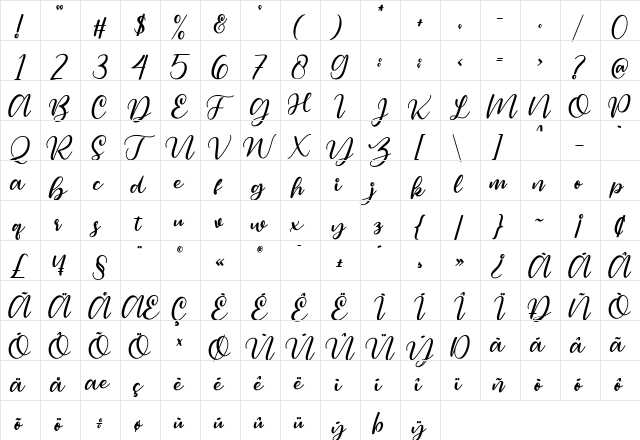 ! " # $ % & ' ( ) * + , - . / 0
1 2 3 4 5 6 7 8 9 : ; < = > ? @
A B C D E F G H I J K L M N O P
Q R S T U V W X Y Z [ \ ] ^ _
a b c d e f g h i j k l m n o p
q r s t u v w x y z { | } ~ ¡ ¢
£ ¥ § ¨ © « ® ¯ ± ´ ¸ » ¿ À Á Â
Ã Ä Å Æ Ç È É Ê Ë Ì Í Î Ï Ð Ñ Ò
Ó Ô Õ Ö × Ø Ù Ú Û Ü Ý Þ à á â ã
ä å æ ç è é ê ë ì í î ï ñ ò ó ô
õ ö ÷ ø ù ú û ü ý þ ÿ